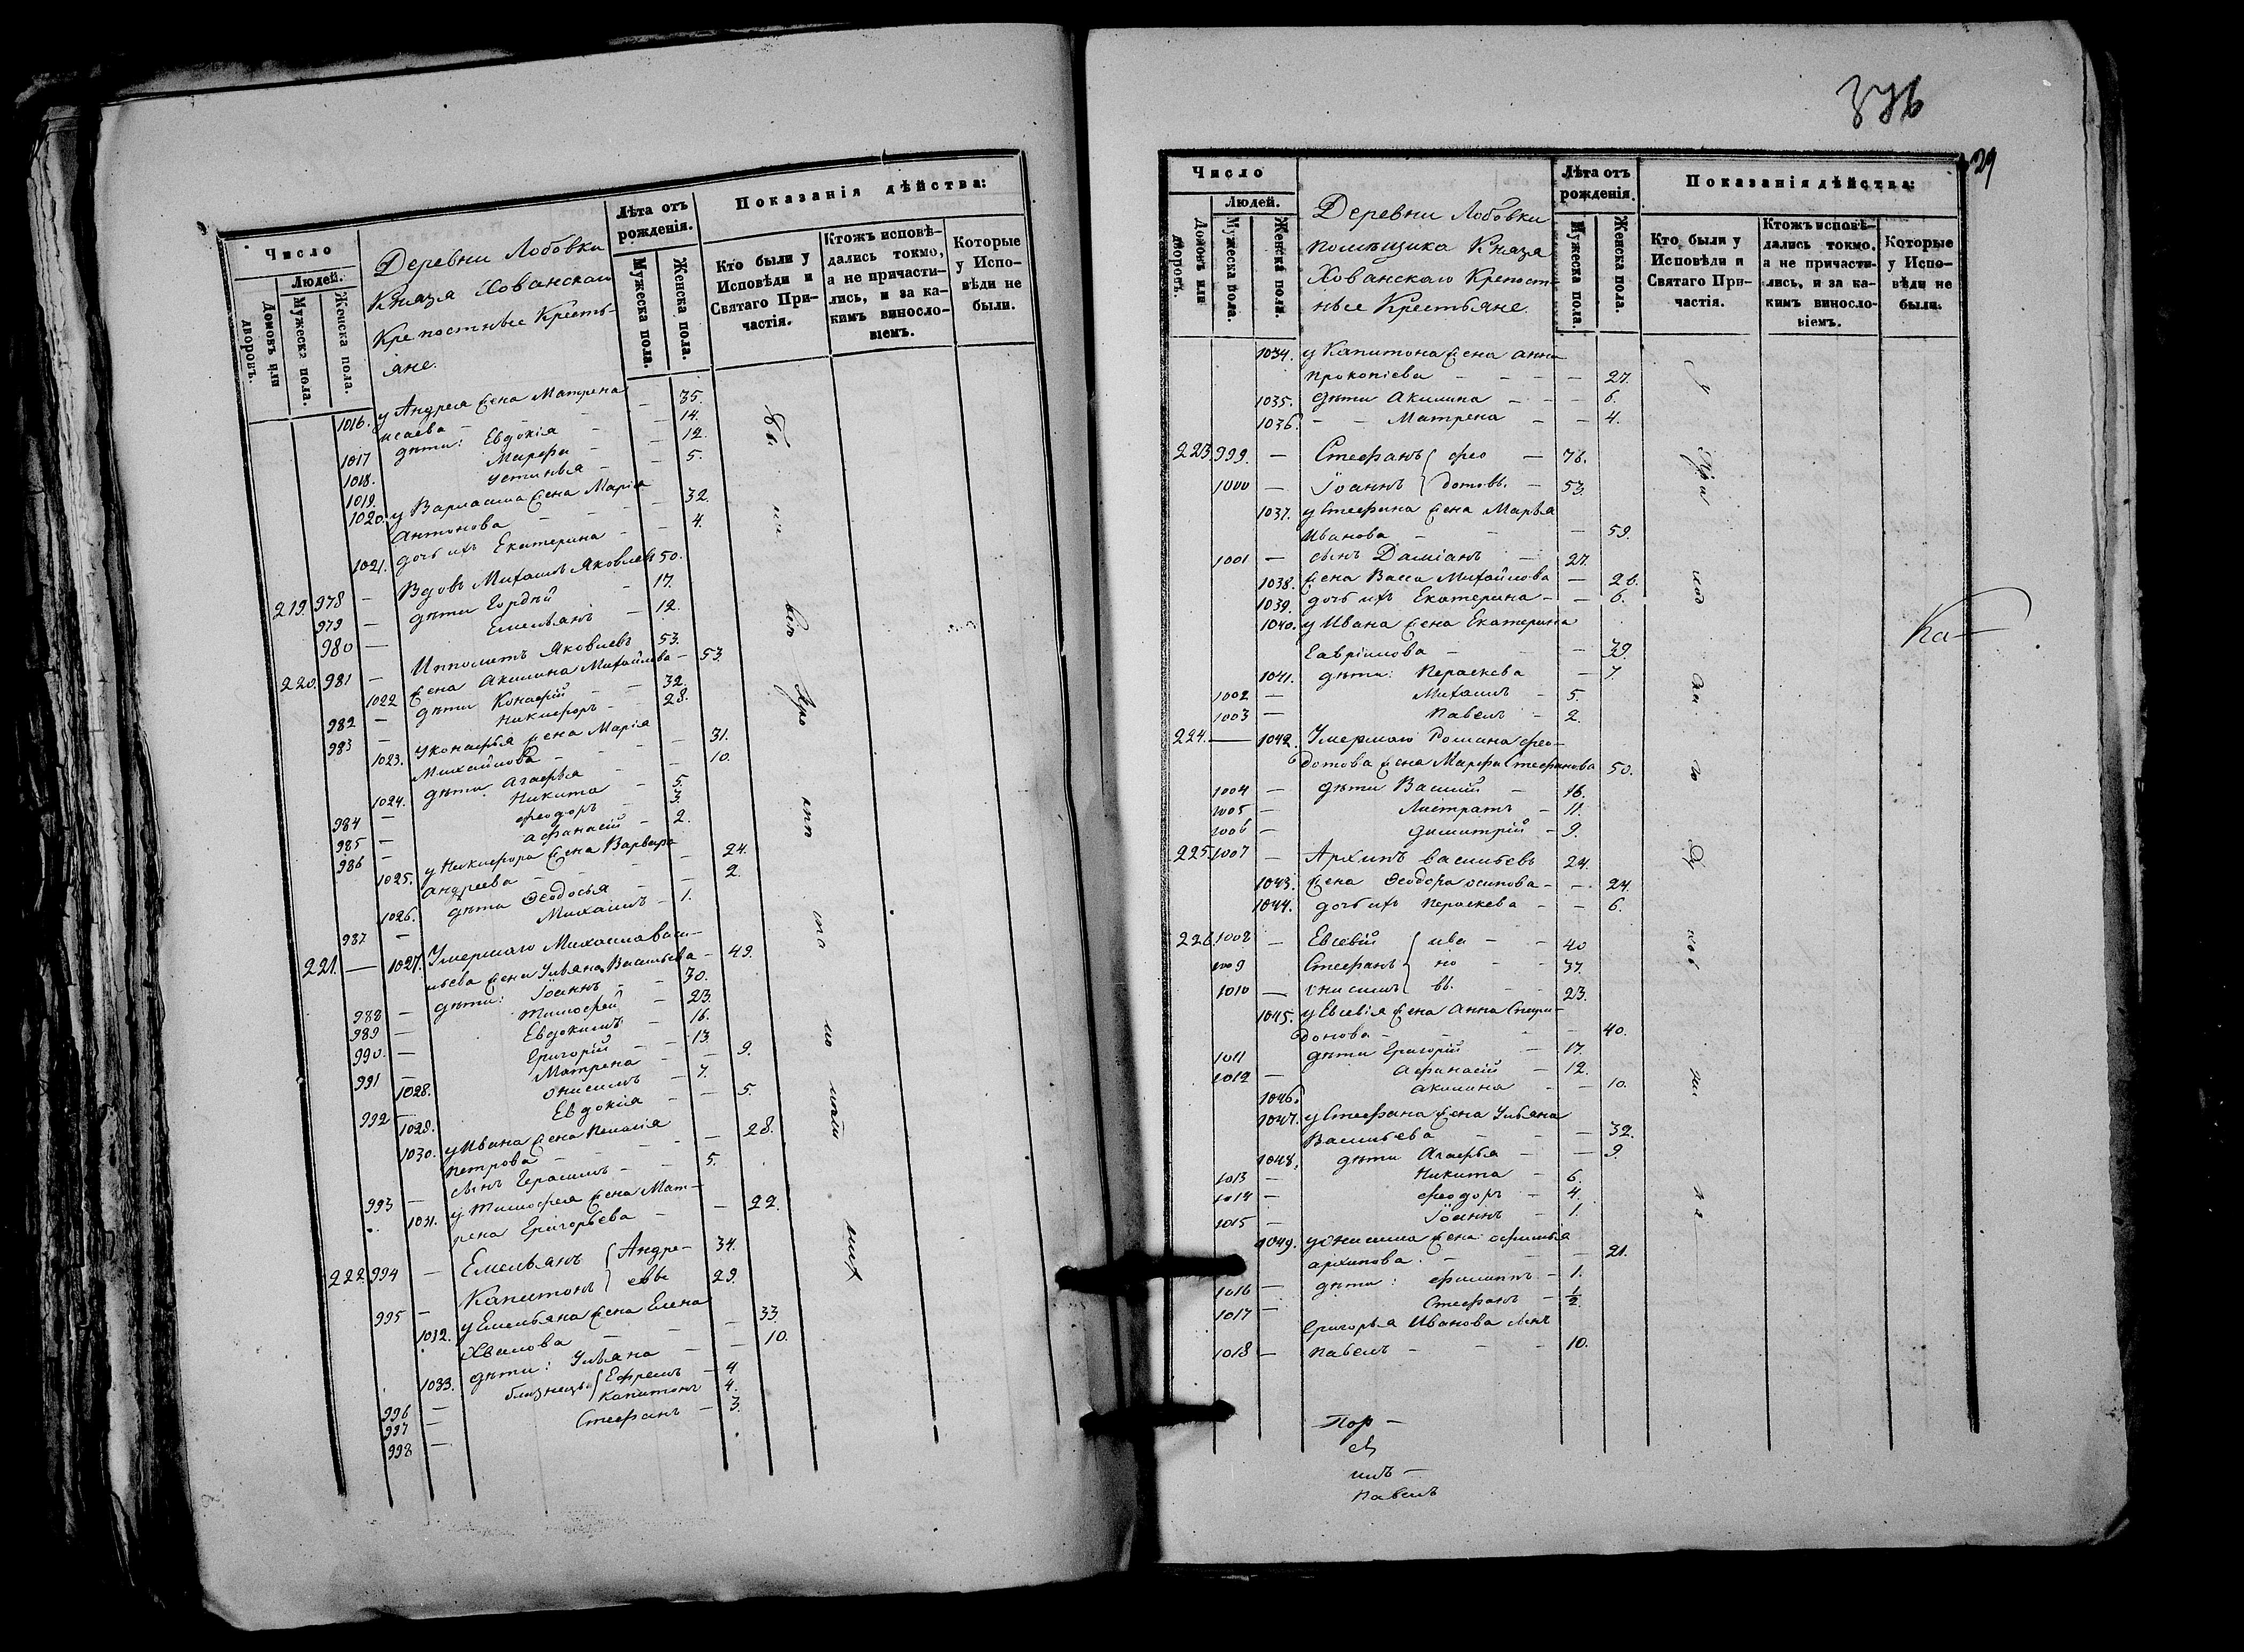 Число
Людей.
Домовъ или дворовъ.
Мужеска пола.
Женска пола.
Деревни Лобовки
Князя Хованскаго
Крепостные Кресть-
яне.
Лѣта отъ рожденія.
Мужеска пола.
Женска пола.
Показанія дѣйства:
Кто были у Исповѣди и Святаго Причастія.
Ктожъ исповѣдались токмо, а не причастились, и за какимъ винословіемъ.
Которые у Исповѣди не были.
1016. у Андрея жена Матрена
Исаева - - 35.
1017 дѣти: Евдокія - 14.
1018. Марфа - 12.
1019. Устинья - 5.
1020. у Варлаама жена Марія
Антонова - - 32.
1021. дочь ихъ Екатерина - 4.
219. 978 - Вдовъ Михаилъ Яковлевъ 50.
979 - дѣти Гордѣй - 17.
980 - Емельянъ - 12.
220. 981 - Ипполитъ Яковлевъ 53.
1022 жена Акилина Михайлова - 53.
982 - дѣти Конафій - 32.
983 - Никифоръ - 28.
1023. у Конафья жена Марія
Михайлова - - 31.
1024. дѣти Агафья - 10.
984 - Никита - 5.
985 - Феодоръ - 3.
986 - Афанасій - 2.
1025. у Никифора жена Варвара
Андреева - - 24.
1026. дѣти Феодосья - 2.
987 - Михаилъ - 1.
221. — 1027. Умершаго Михаила Васи-
льева жена Ульяна Васильева - 49.
988 - дѣти: Іоаннъ - 30.
989 - Тимофей - 23.
990. - Евдокимъ - 16.
991 - Григорій - 13.
1028. Матрена - 9.
992 - Онисимъ - 7.
1029. Евдокія - 5.
1030. у Ивана жена Пелагія
Петрова - - 28.
993 - сынъ Герасимъ - 5.
1031. у Тимофея жена Мат-
рена Григорьева - 22.
222. 994 - Емельянъ Андре- 34.
995 - Капитонъ евы 29.
1032. у Емельяна жена Елена
- - 33.
1033. дѣти: Ульяна - 10.
996 - близнецы Ефремъ - 4
997 - Капитонъ 4.
998 - Стефанъ - 3.
376
29
Число
Людей.
Домовъ или дворовъ.
Мужеска пола.
Женска пола.
Деревни Лобовки
помѣщика Князя
Хованскаго Крепост
ные Крестьяне.
Лѣта отъ рожденія.
Мужеска пола.
Женска пола.
Показанія дѣйства:
Кто были у Исповѣди и Святаго Причастія.
Ктожъ исповѣдались токмо, а не причастились, и за какимъ винословіемъ.
Которые у Исповѣди не были.
1034. у Капитона жена Анна
Прокопіева - - - 27.
1035. дѣти Акилина - - 6.
1036. - - Матрена - - 4.
223. 999. - Стефанъ Фео - 76.
1000 - Іоаннъ дотовы. - 53.
1037. у Стефана жена Марья
Иванова - - 59.
1001 - сынъ Даміанъ - 27.
1038. жена Васса Михайлова - 26.
1039. дочь ихъ Екатерина - - 6.
1040. у Ивана жена Екатерина
Гавріилова - - 39.
1041. дѣти: Параскева - 7
1002 - Михаилъ - 5.
1003 - Павелъ - 2.
224. — 1042. Умершаго Романа Фео-
дотова жена Марфа Стефанова 50.
1004 - дѣти Василій - 16.
1005 - Листратъ - 11.
1006 - Димитрій - 9.
225. 1007 - Архипъ Васильевъ 24.
1043. жена Феодора Осипова - - 24.
1044. дочь ихъ Параскева - - 6.
226. 1008 - Евсевій ива - - 40
1009 Стефанъ но - - 37.
1010 — Онисимъ вы. - - 23.
1045. у Евсевія жена Анна Спири-
донова - - - 40.
1011 дѣти Григорій - 17.
1012 - Афанасій - 12.
1046. Акилина - - 10.
1047. у Стефана жена Ульяна
Васильева - - 32.
1048. дѣти Агафья - - 9.
1013 - Никита - 6.
1014 - Феодоръ - 4.
1015 - Іоаннъ - 1.
1049. у Онисима жена Афимья
Архипова. - - 21.
1016 - дѣти: Филиппъ - 1.
1017 - Стефанъ - ½.
Григорья Иванова сынъ
1018 - Павелъ - - - 10.
Ка—
Пор -
Павелъ